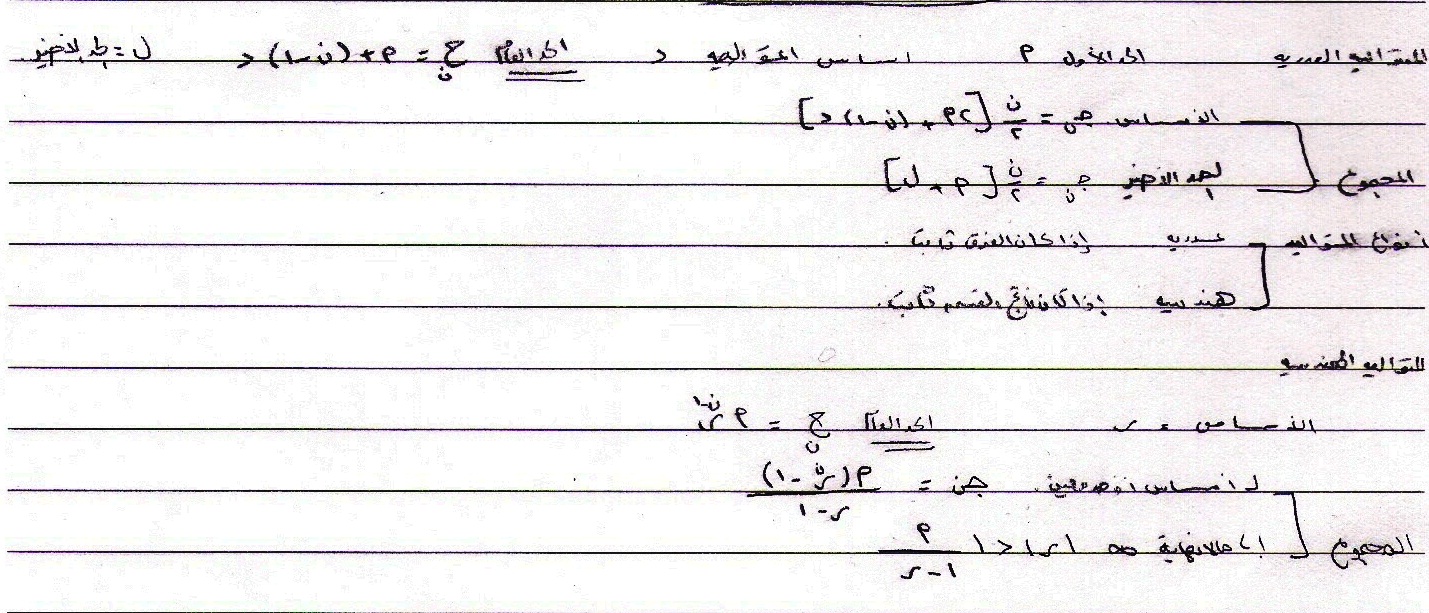 المتواليه العدديه الحد الأول م اساس المتواليه د الحد العام حن = م + (ن-١) د ل = الحد الاخير
الاساس جن = ن/٢ [٢م + (ن-١) د]
المجموع
الحد الأخير جن = ن/٢ [م + ل]
أنواع المتواليه عدديه إذا كان الفرق ثابت.
هندسيه إذا كان ناتج القسمه ثابت.
المتواليه الهندسيه
الاساس = ر الحد العام حن = م ر^ن-١
أساس جن = م(ر^ن - ١) / ر-١
المجموع
إلى مالانهاية ∞ |ر| < ١ م / ١-ر